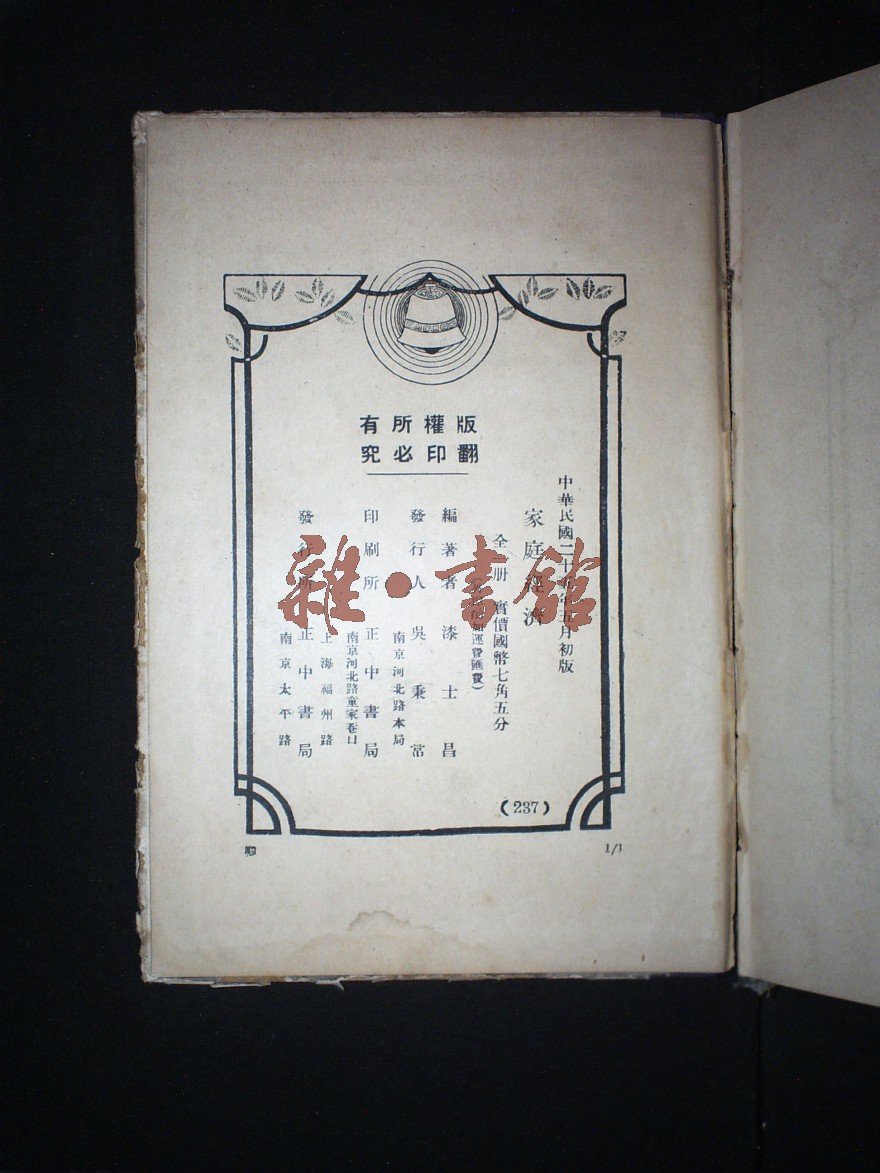 版權所有
翻印必究
中華民國二十五年五月初版
家庭經濟
全一冊 實價國幣七角五分
加運費匯費)
編著者 漆士昌
發行人 吳秉常
南京河北路本局
印刷所 正中書局
南京河北路童家巷口
發行所 正中書局
上海福州路
南京太平路
(237)
1/1
雜·書館